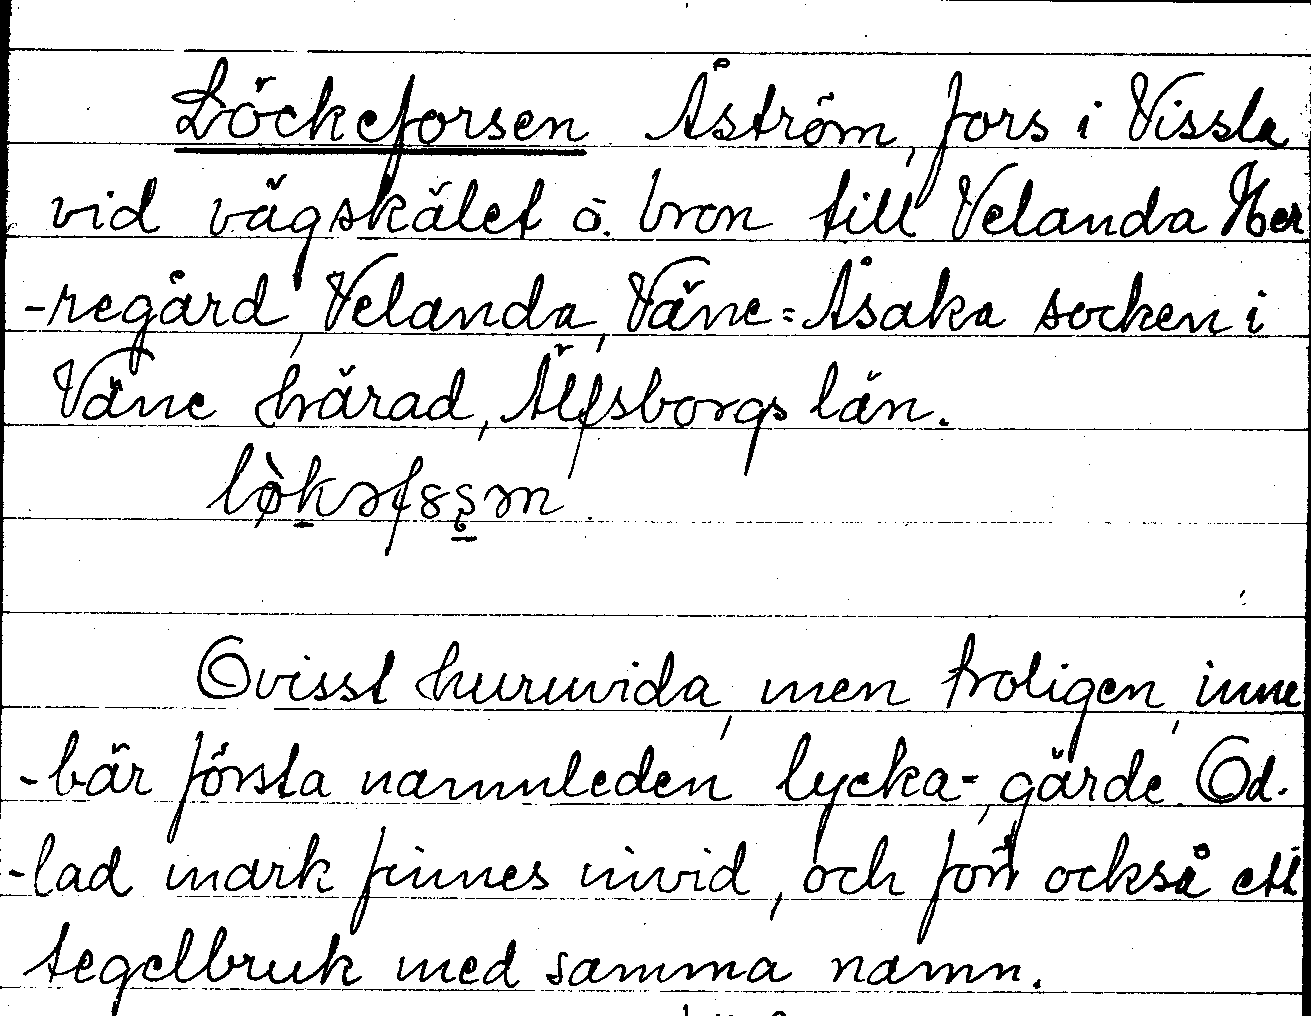 Löckeforsen Åström, fors i Vissla
vid vägskälet ö. bron till Velanda Her
-regård, Velanda, Väne=Åsaka socken i
Väne härad, Älfsborgs län.
Ovisst huruvida, men troligen, inne
-bär första namnleden lycka-, gärde. Od-
-lad mark finnes invid, och förr också ett
tegelbruk med samma namn.